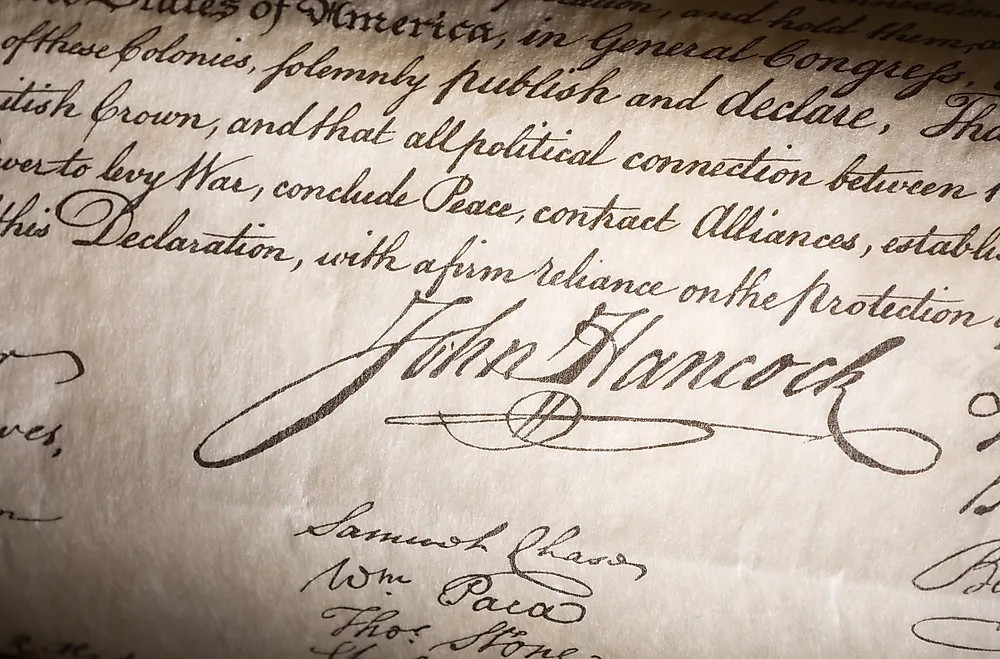 States of America, in General Congreſs,
and hold them, as
of these Colonies, solemnly publish and declare, Tha
itish Crown, and that all political connection between
wer to levy War, conclude Peace, contract Alliances, establi
this Declaration, with a firm reliance on the Protection
John Hancock
ves,
Samuel Chase
Wm Paca
Thos Stone